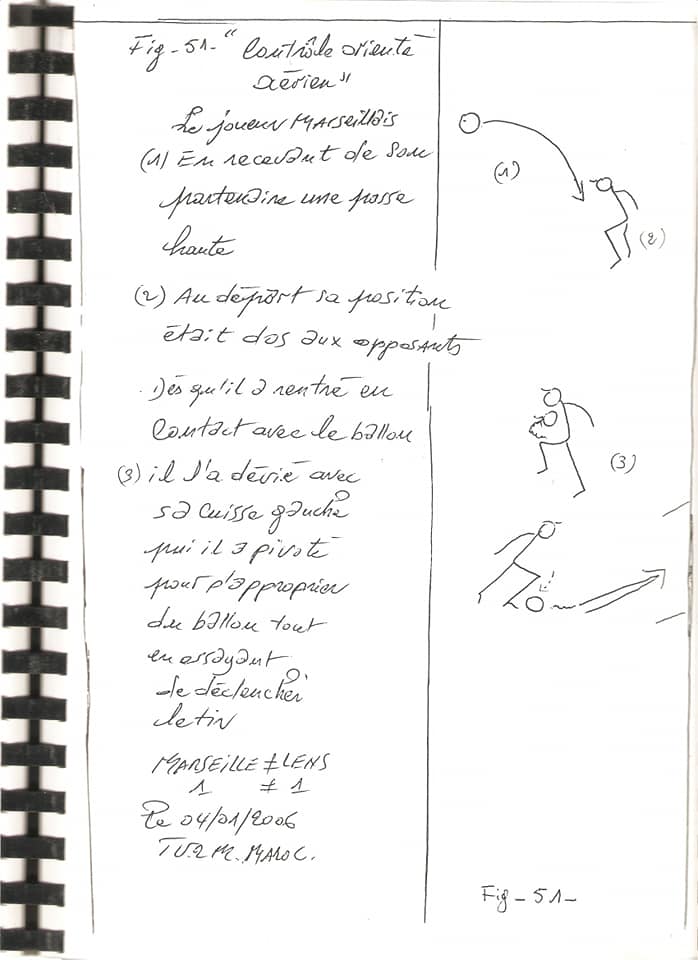 Fig-51-" Contrôle orienté
aérien"
Le joueur Marseillais
(1) En recevant de son
partenaire une passe
haute
(2) Au départ sa position
était dos aux opposants
Dès qu'il a rentré en
contact avec le ballon
(3) il l'a dévié avec
sa cuisse gauche
pui il a pivoté
pour s'approprier
du ballon tout
en essayant
de déclencher
le tir
MARSEILLE ≠ LENS
1 ≠ 1
Le 04/01/2006
TV.2M.MAROC.
(1)
(2)
(3)
Fig-51-